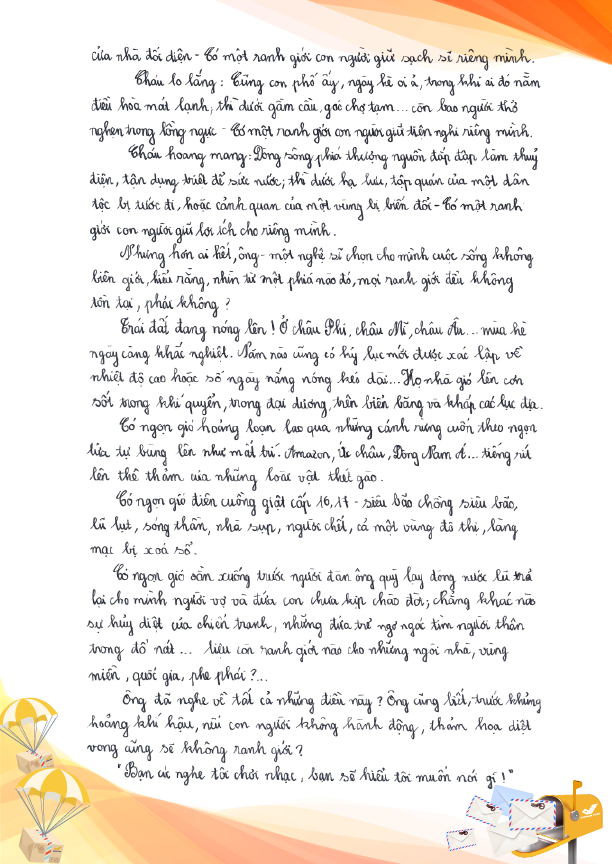 cửa nhà đối diện - Có một ranh giới con người giữ sạch sẽ riêng mình.
Cháu lo lắng: Cũng con phố ấy, ngày hè oi ả, trong khi ai đó nằm
điều hòa mát lạnh, thì dưới gầm cầu, góc chợ tạm... còn bao người thở
nghẹn trong lồng ngực - Có một ranh giới con người giữ tiện nghi riêng mình.
Cháu hoang mang: Dòng sông phía thượng nguồn đắp đập làm thuỷ
điện, tận dụng triệt để sức nước; thì dưới hạ lưu, tập quán của một dân
tộc bị tước đi, hoặc cảnh quan của một vùng bị biến đổi - Có một ranh
giới con người giữ lợi ích cho riêng mình.
Nhưng hơn ai hết, ông - một nghệ sĩ chọn cho mình cuộc sống không
biên giới, hiểu rằng, nhìn từ một phía nào đó, mọi ranh giới đều không
tồn tại, phải không?
Trái đất đang nóng lên! Ở châu Phi, châu Mĩ, châu Âu... mùa hè
ngày càng khắc nghiệt. Năm nào cũng có kỷ lục mới được xác lập về
nhiệt độ cao hoặc số ngày nắng nóng kéo dài... Họ nhà gió lên cơn
sốt trong khí quyển, trong đại dương, trên biển băng và khắp các lục địa.
Có ngọn gió hoảng loạn lao qua những cánh rừng cuốn theo ngọn
lửa tự bùng lên như mất trí. Amazon, Úc châu, Đông Nam Á... tiếng rít
lên thê thảm của những loài vật thét gào.
Có ngọn gió điên cuồng giật cấp 16, 17 - siêu bão chồng siêu bão,
lũ lụt, sóng thần, nhà sụp, người chết, cả một vùng đô thị, làng
mạc bị xoá sổ.
Có ngọn gió sần xuống trước người đàn ông quỳ lạy dòng nước lũ trả
lại cho mình người vợ và đứa con chưa kịp chào đời; chẳng khác nào
sự huỷ diệt của chiến tranh, những đứa trẻ ngơ ngác tìm người thân
trong đổ nát... liệu còn ranh giới nào cho những ngôi nhà, vùng
miền, quốc gia, phe phái?...
Ông đã nghe về tất cả những điều này? Ông cũng biết, trước khủng
hoảng khí hậu, nếu con người không hành động, thảm hoạ diệt
vong cũng sẽ không ranh giới?
"Bạn cứ nghe tôi chơi nhạc, bạn sẽ hiểu tôi muốn nói gì!"